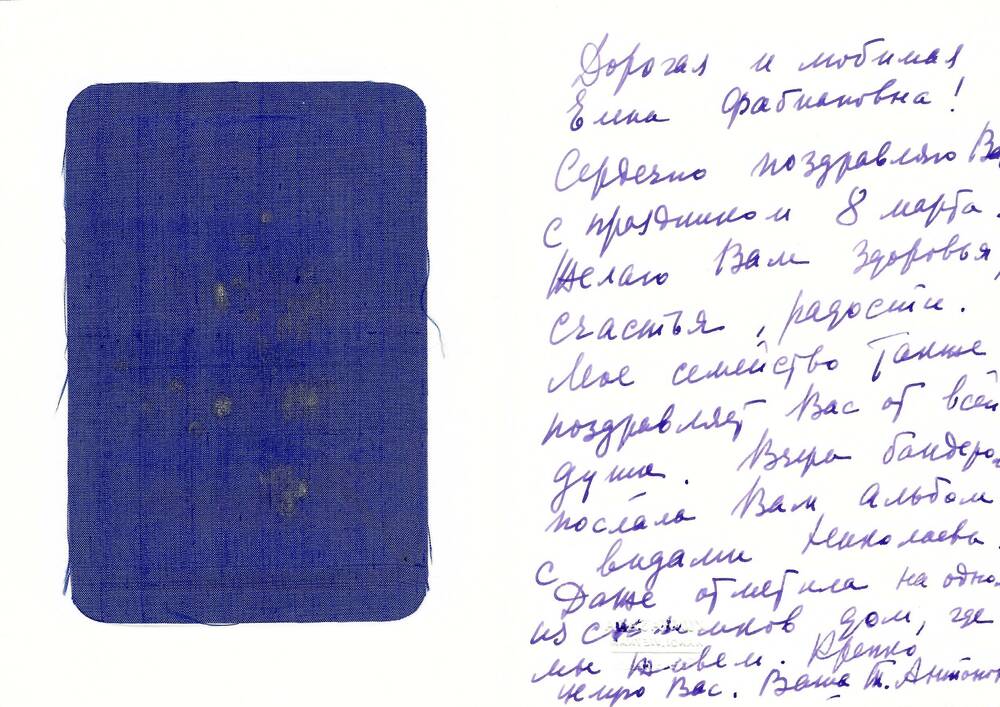 Дорогая и любимая
Елена Фабиановна!
Сердечно поздравляю Ва
с праздником 8 марта.
Желаю Вам здоровья,
счастья, радости.
Мое семейство также
поздравляет Вас от всей
души. Вчера бандеро
послала Вам альбом
с видами Николаева.
Даже отметила на одно
из снимков дом, где
мы живем. Крепко
целую Вас. Ваша Т. Антонов